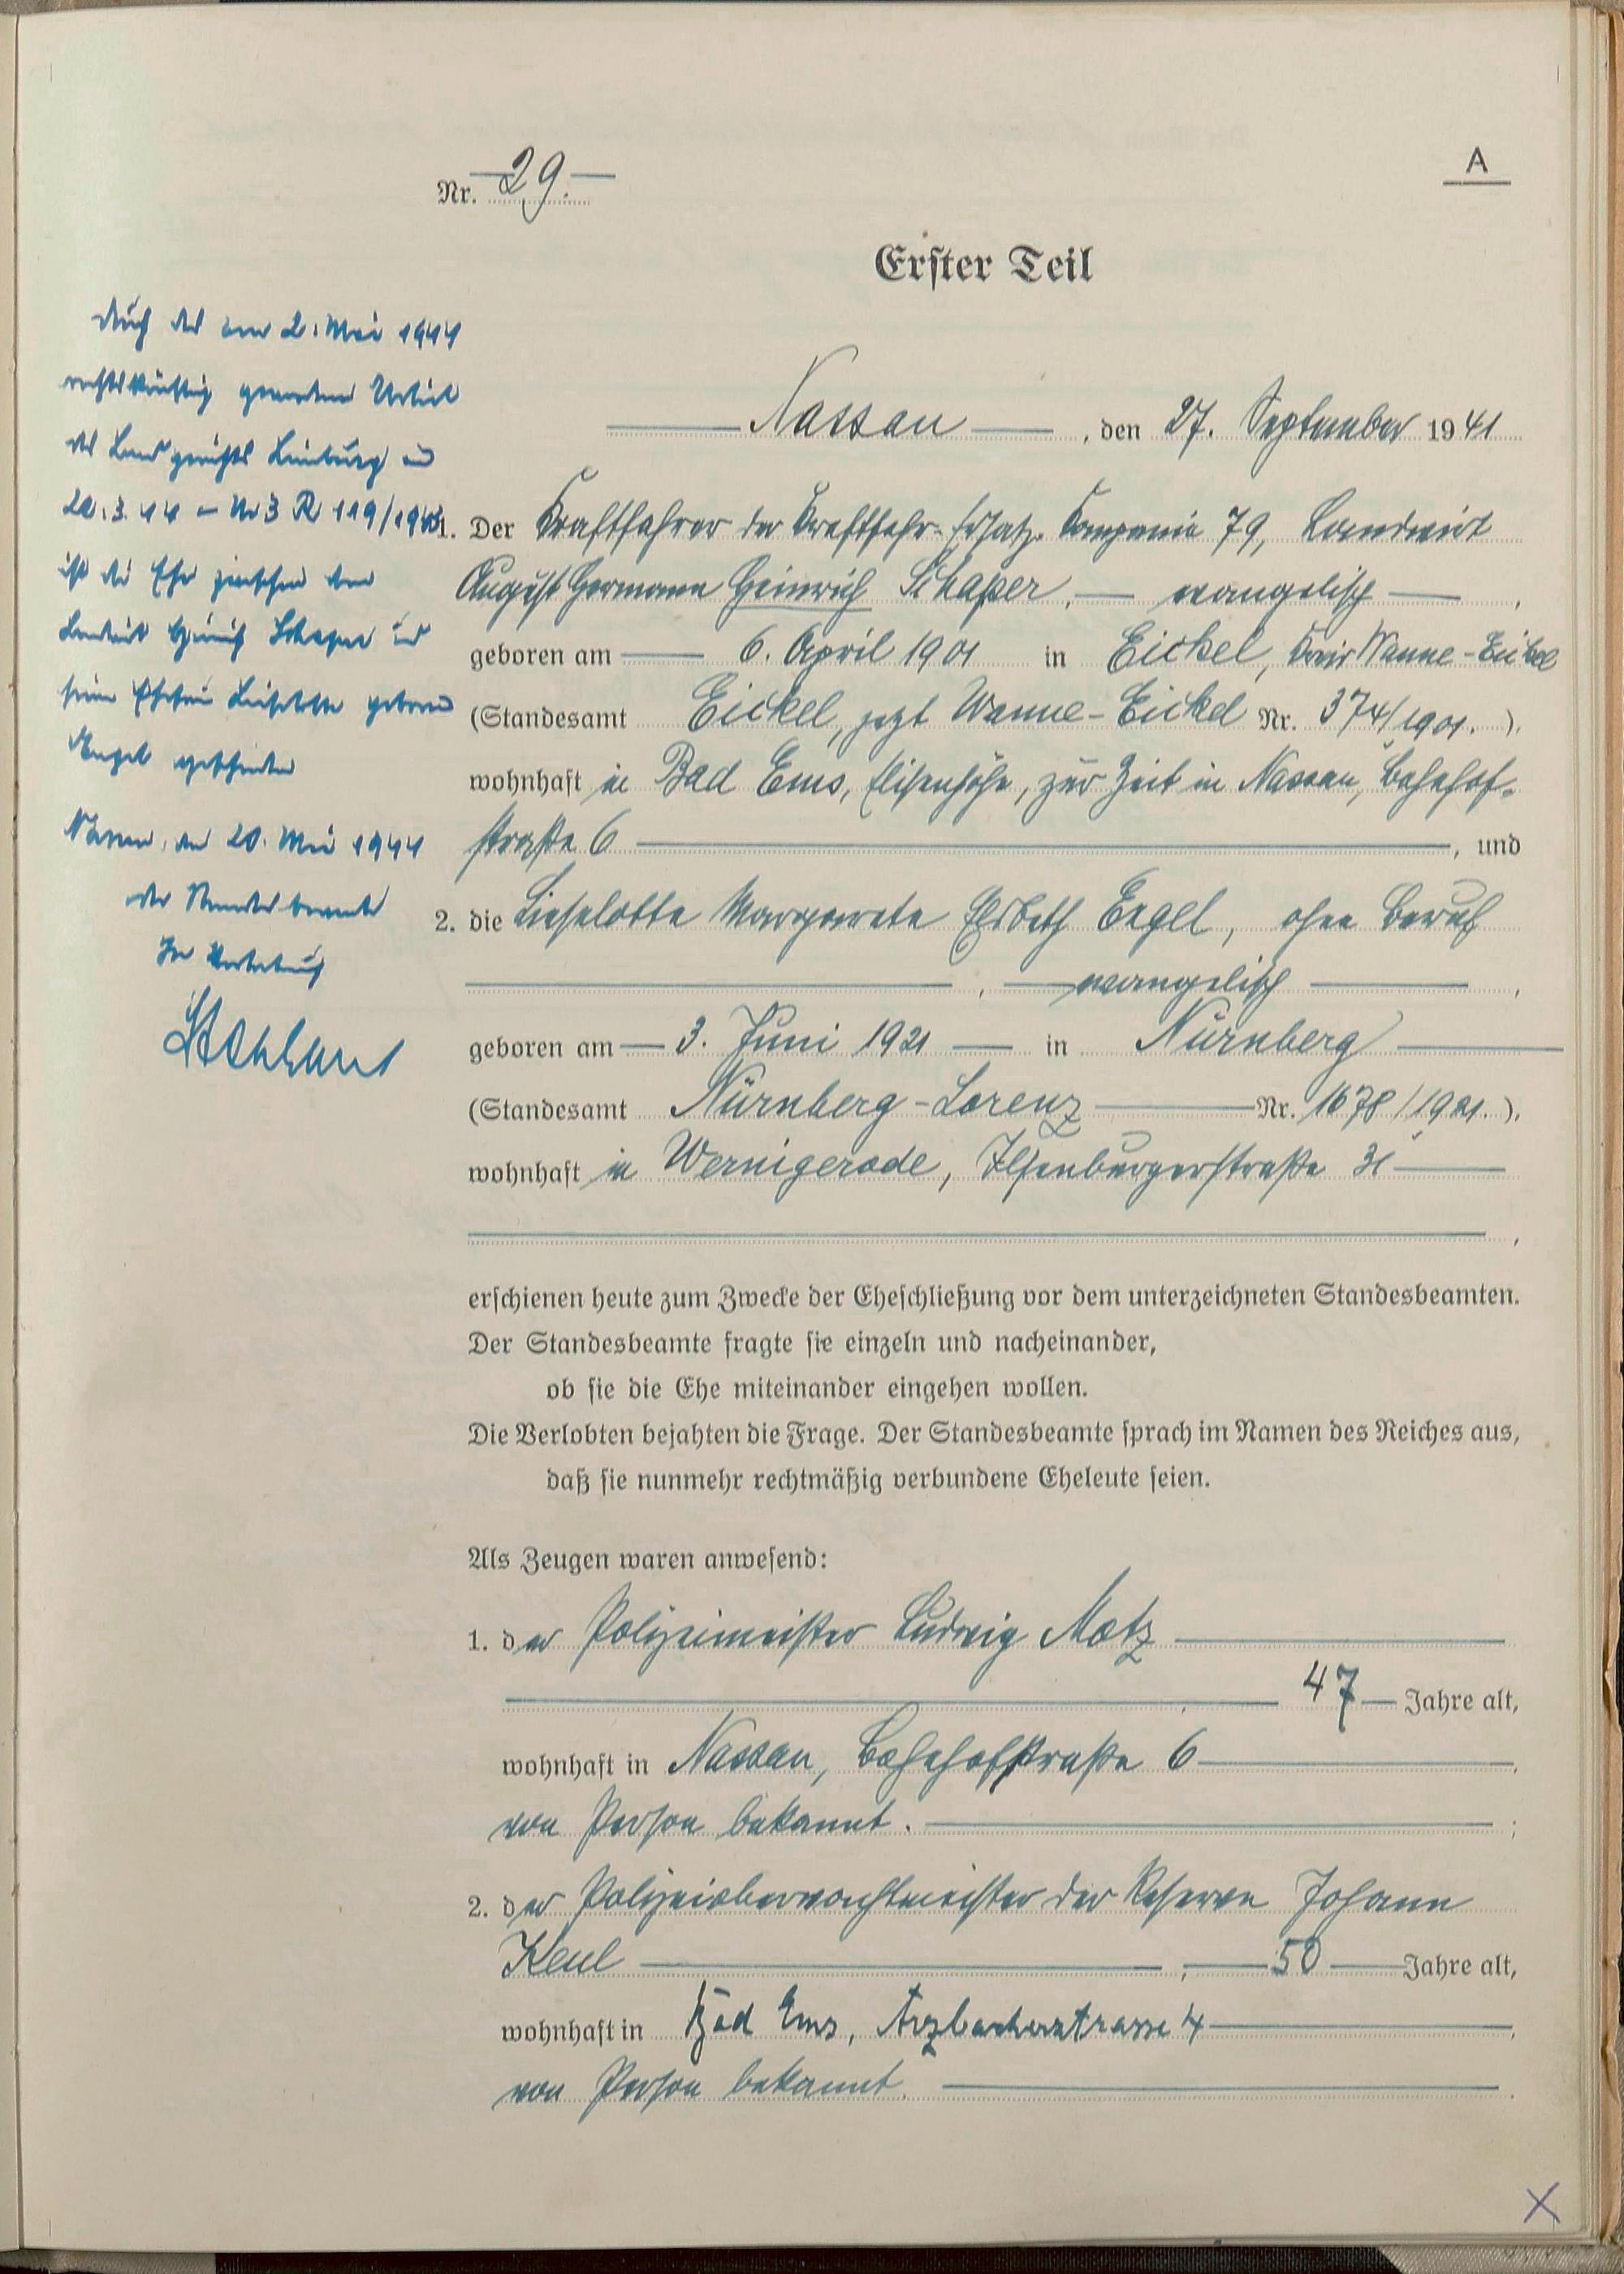 A
Nr. 29.
Erster Teil
Durch das am 2. Mai 1944
rechtskräftig gewordene Urteil
des Landgerichts Limburg
20.3.44 – Nr 3 R 119/1943
ist die Ehe zwischen dem
Landwirt Heinrich Schaper und
seiner Ehefrau Lieselotte geborene
Engel geschieden
Nassau, den 20. Mai 1944
Der Standesbeamte
In Vertretung
Nassau, den 27. September 1941
1. Der Kraftfahrer der Kraftfahr-Ersatz-Kompanie 79, Landwirt
August Hermann Heinrich Schaper, evangelisch,
geboren am 6. April 1901 in Eickel, Kreis Wanne-Eickel
(Standesamt Eickel, jetzt Wanne-Eickel Nr. 374/1901.),
wohnhaft in Bad Ems, Elisenhöhe, zur Zeit in Nassau, Bahnhof-
straße 6, und
2. die Lieselotte Margarete Elsbeth Engel, ohne Beruf
, evangelisch,
geboren am 3. Juni 1921 in Nürnberg
(Standesamt Nürnberg-Lorenz Nr. 1678/1921.),
wohnhaft in Wernigerode, Ilsenburgerstraße 31
,
erschienen heute zum Zwecke der Eheschließung vor dem unterzeichneten Standesbeamten.
Der Standesbeamte fragte sie einzeln und nacheinander,
ob sie die Ehe miteinander eingehen wollen.
Die Verlobten bejahten die Frage. Der Standesbeamte sprach im Namen des Reiches aus,
daß sie nunmehr rechtmäßig verbundene Eheleute seien.
Als Zeugen waren anwesend:
1. der Polizeimeister Ludwig Motz
, 47 Jahre alt,
wohnhaft in Nassau, Bahnhofstraße 6,
von Person bekannt.;
2. der Polizeioberwachtmeister der Reserve Johann
Keul, 50 Jahre alt,
wohnhaft in Bad Ems, Arzbacherstrasse 4,
von Person bekannt.
X